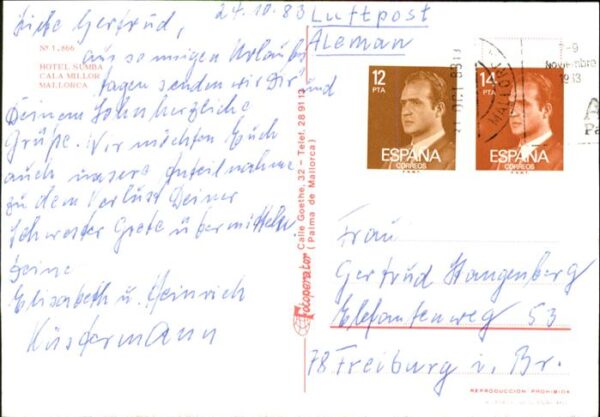 24.10.83
Liebe Gertrud,
Nº 1.866
HOTEL SUMBA
CALA MILLOR
MALLORCA
aus sonnigen Urlaubs
tagen senden wir Dir und
Deinem Sohn herzliche
Grüße. Wir möchten Euch
auch unsere Anteilnahme
zu dem Verlust Deiner
Schwester Grete übermitteln
Deine
Elisabeth u. Heinrich
Küstermann
Fotoperator Calle Goethe, 32 - Telef. 28 91 13
(Palma de Mallorca)
Luftpost
Aleman
12
PTA
ESPAÑA
CORREOS
14
PTA
ESPAÑA
CORREOS
Frau
Gertrud Hangenberg
Elefantenweg 53
78 Freiburg i. Br.
REPRODUCCION PROHIBIDA